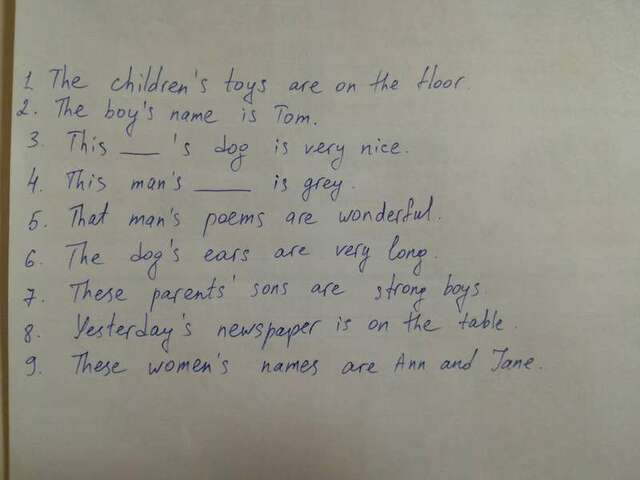 1. The children's toys are on the floor.
2. The boy's name is Tom.
3. This ___'s dog is very nice.
4. This man's ____ is grey.
5. That man's poems are wonderful.
6. The dog's ears are very long.
7. These parents' sons are strong boys
8. Yesterday's newspaper is on the table.
9. These women's names are Ann and Jane.